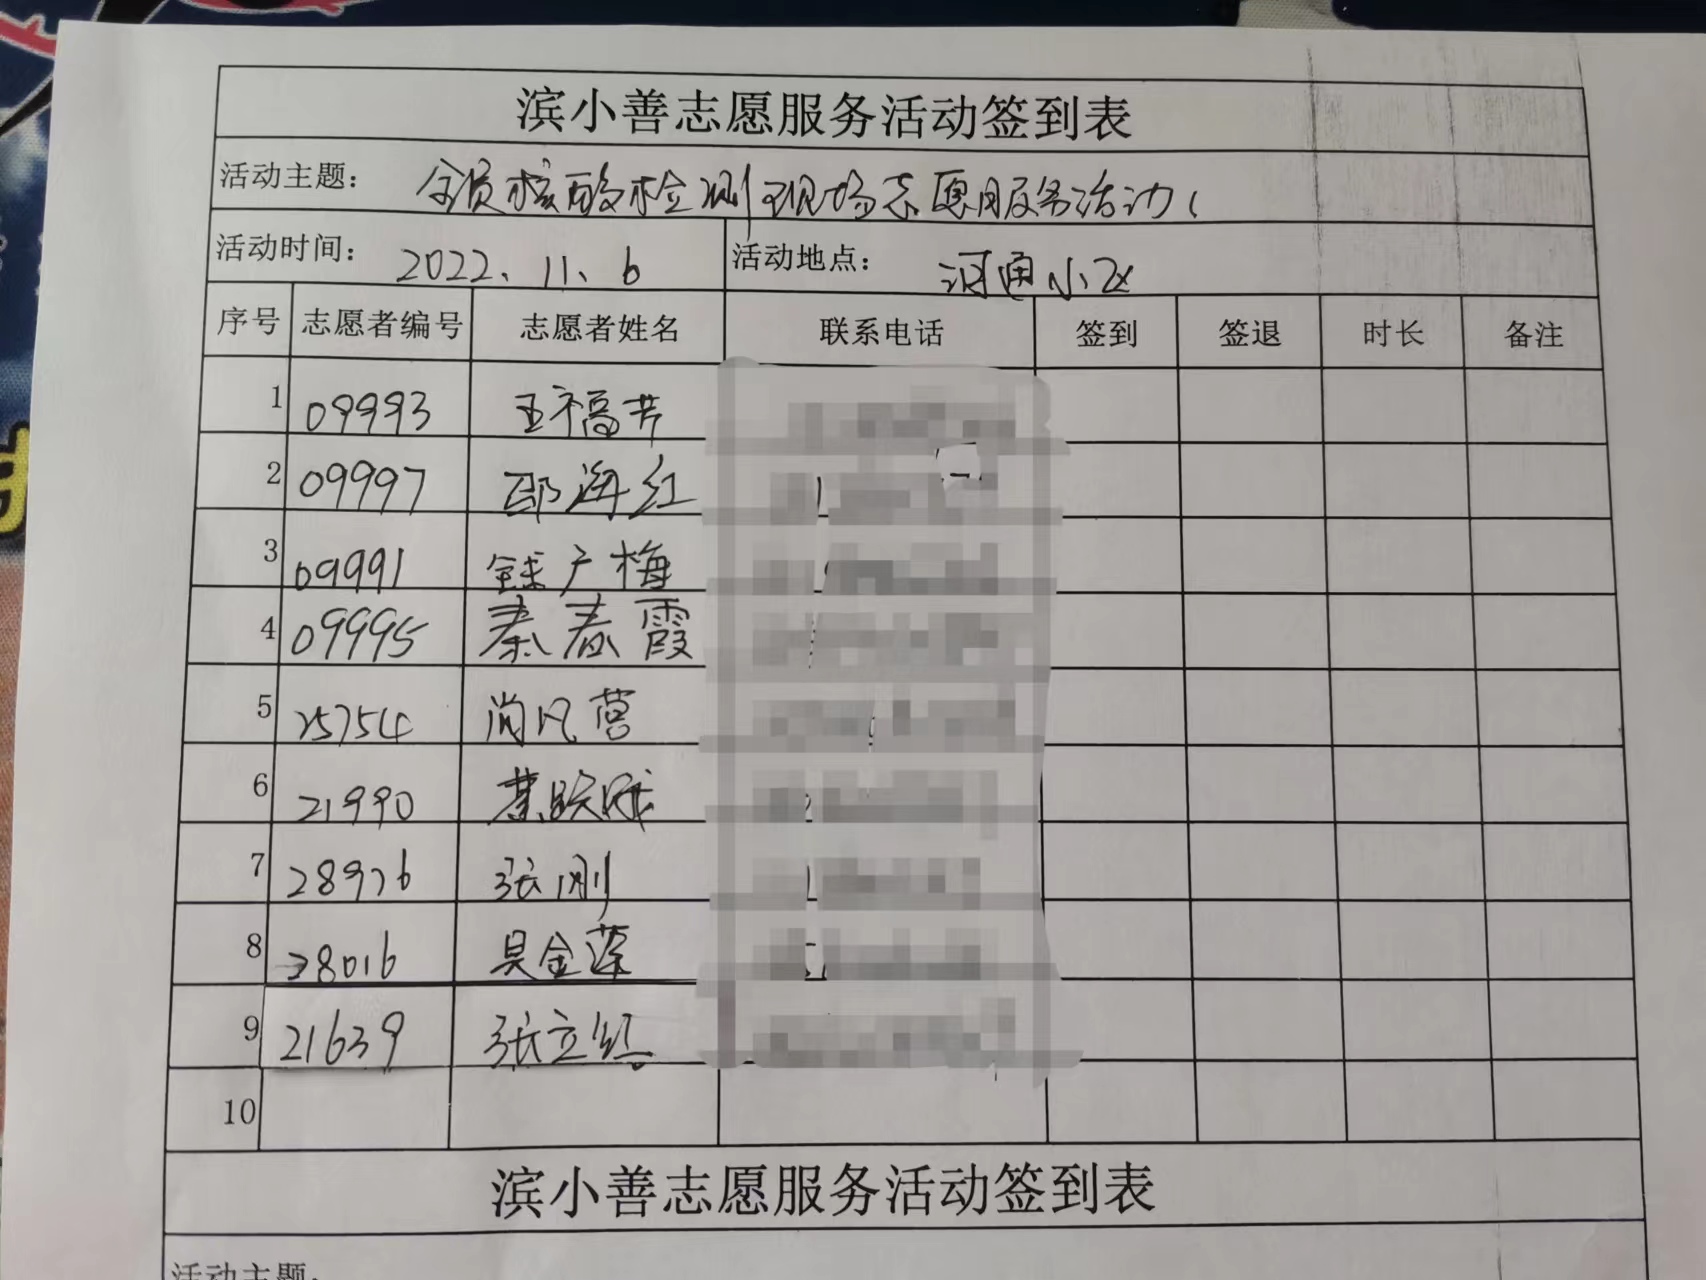 滨小善志愿服务活动签到表
活动主题： 全员核酸检测现场志愿服务活动
活动时间： 2022、11、6 活动地点： 河通小区
序号 志愿者编号 志愿者姓名 联系电话 签到 签退 时长 备注
1 09993 王福芹
2 09997 邵海红
3 09991 广梅
4 09995 秦春霞
5 25754 尚凡营
6 21990
7 28976 张刚
8 28016 吴金莲
9 21639 张立红
10
滨小善志愿服务活动签到表
活动主题：